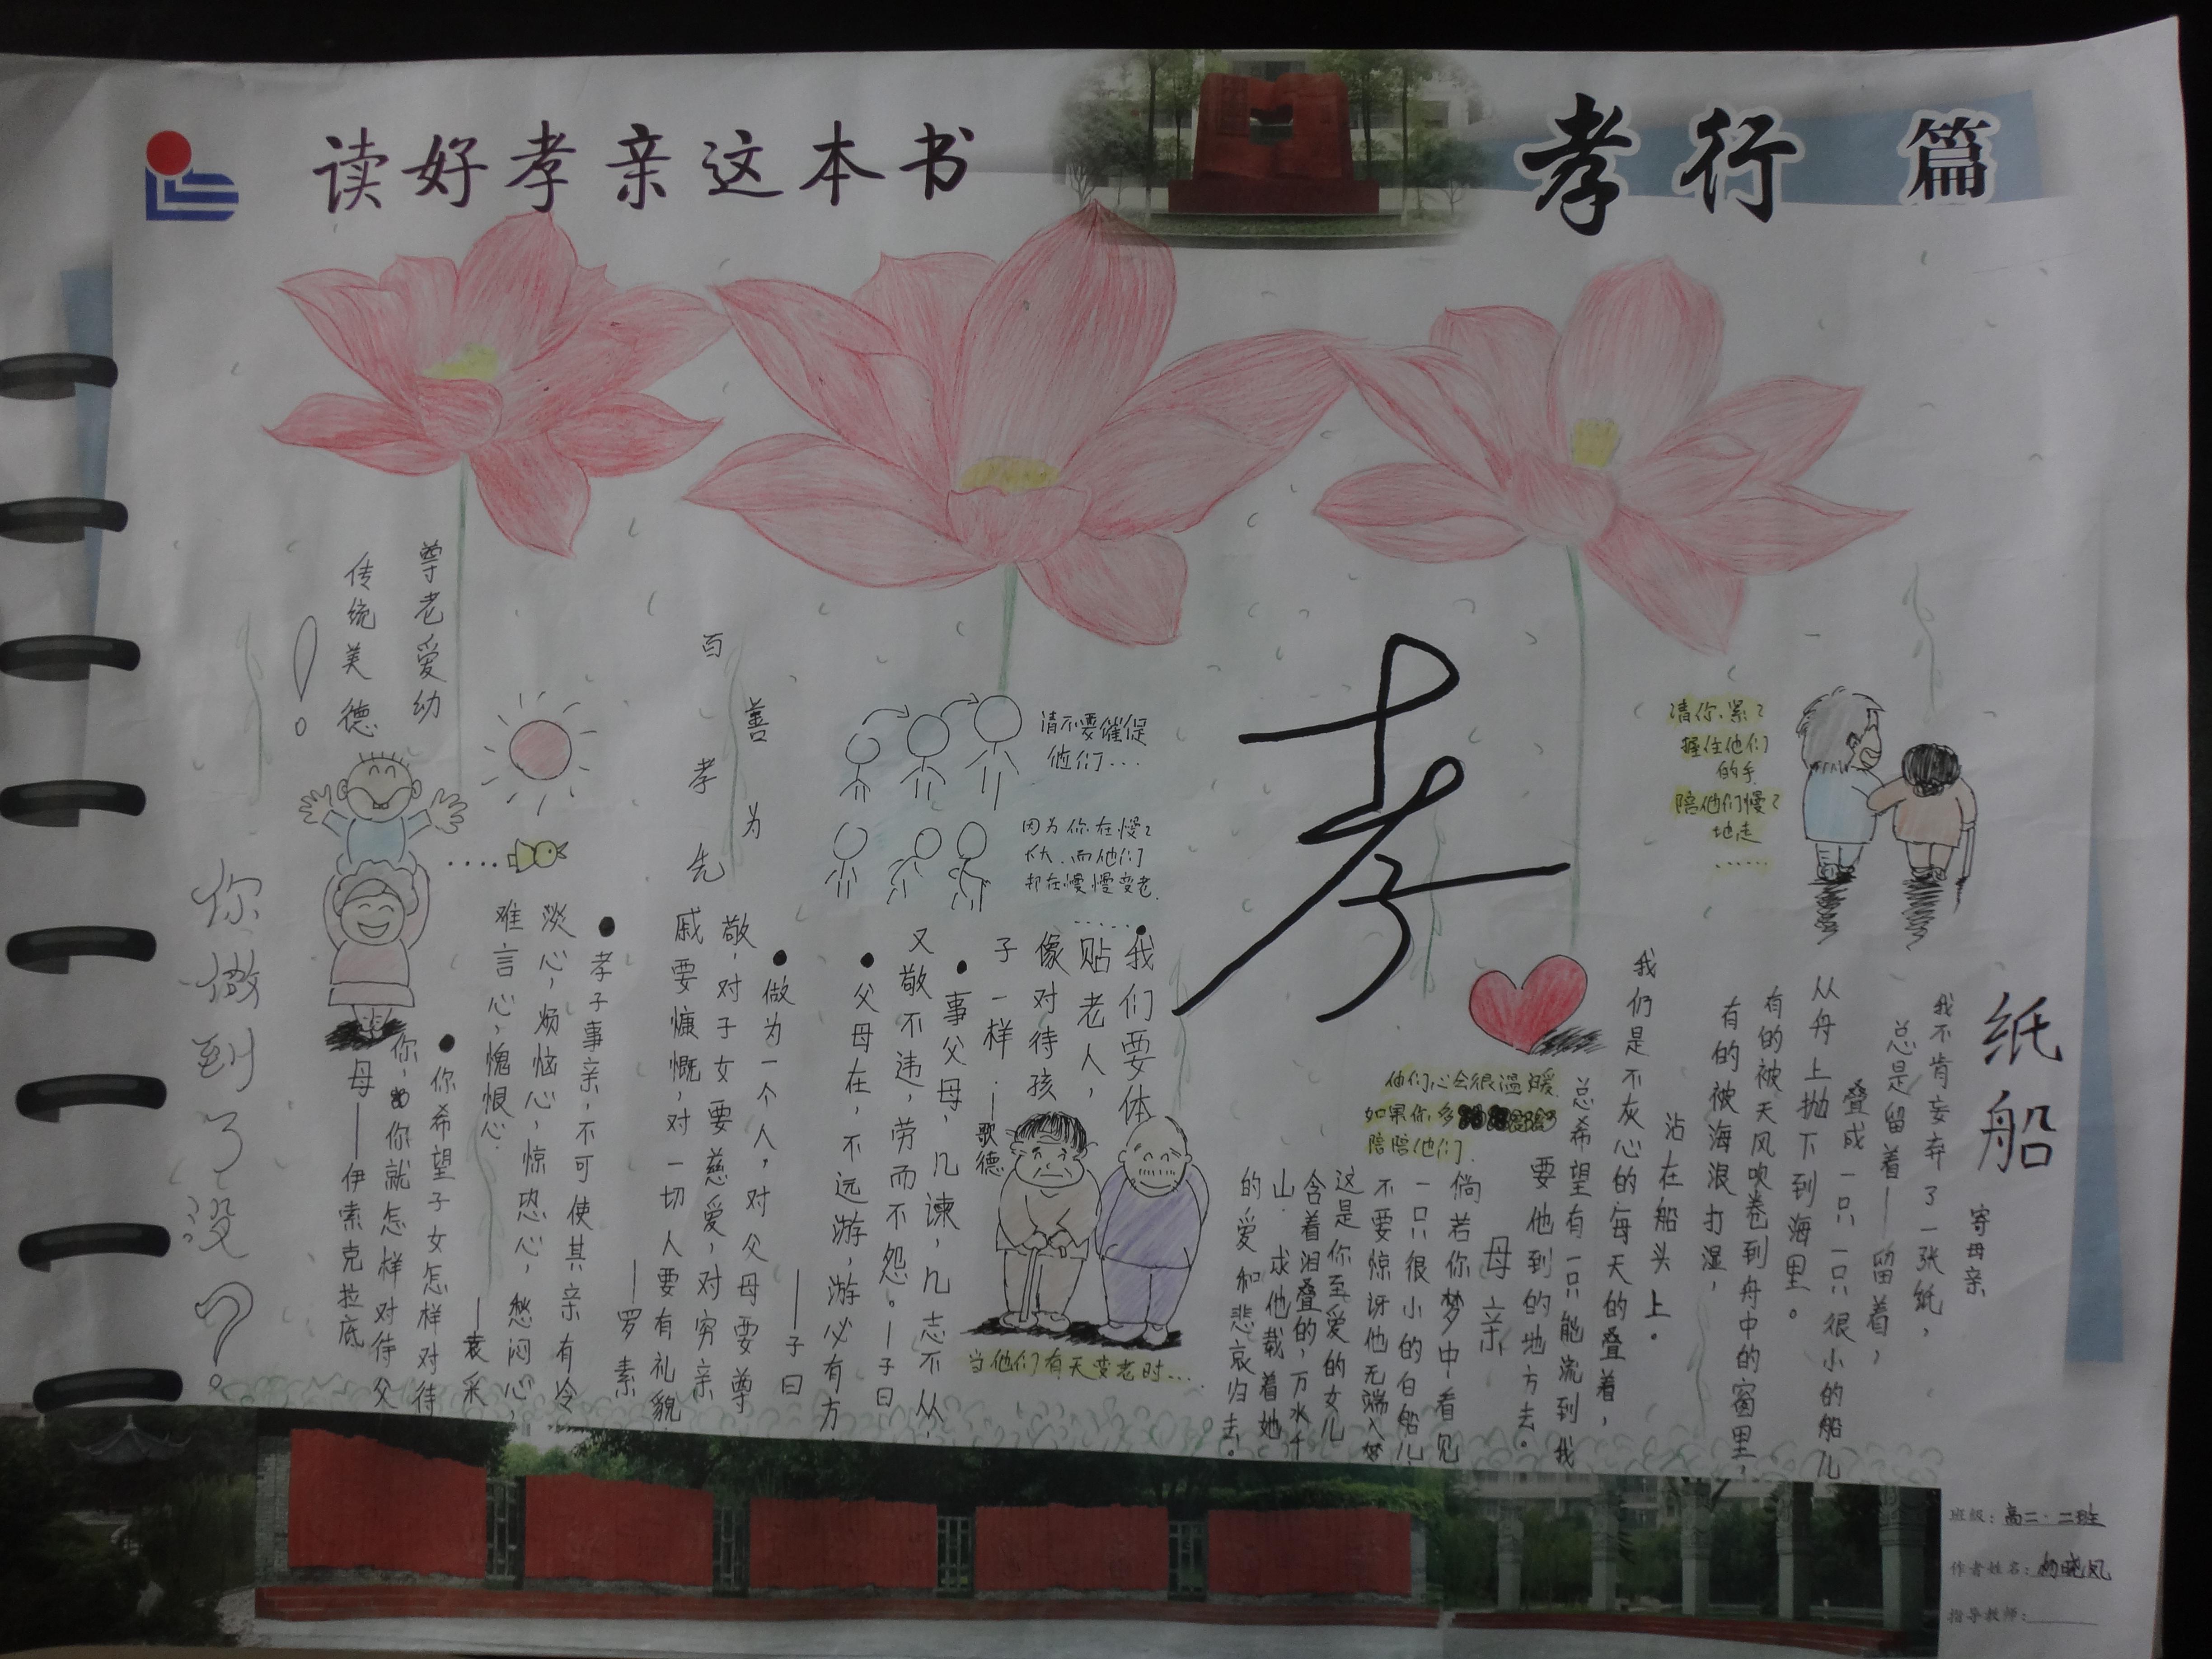 读好孝亲这本书
孝行 篇
纸船
寄母亲
我不肯妄弃了一张纸，
总是留着——留着，
叠成一只一只很小的船儿
从舟上抛下到海里。
有的被天风吹卷到舟中的窗里，
有的被海浪打湿，
沾在船头上。
我仍是不灰心的每天的叠着，
总希望有一只能流到我
要他到的地方去。
母亲
倘若你梦中看见
一只很小的白船儿，
不要惊讶他无端入梦
这是你至爱的女儿
含着泪叠的，万水千
山，求他载着她
的爱和悲哀归去。
请你紧紧
握住他们
的手
陪他们慢慢
地走
……
孝
他们心会很温暖
如果你多
陪陪他们
请不要催促
他们...
因为你在慢慢
长大，而他们
却在慢慢变老
……
我们要体
贴老人，
像对待孩
子一样。
——歌德
当他们有天变老时...
●事父母，几谏，几志不从，
又敬不违，劳而不怨。——子曰
●父母在，不远游，游必有方
——子曰
●做为一个人，对父母要尊
敬，对子女要慈爱，对穷亲
戚要慷慨，对一切人要有礼貌
——罗素
百善
孝为
先
●孝子事亲，不可使其亲有冷
淡心，烦恼心，惊恐心，愁闷心，
难言心，愧恨心
——袁采
●你希望子女怎样对待
你，你就怎样对待父
母——伊索克拉底
尊老爱幼
传统美德
！
你做到了没？
班级：高二·二班
作者姓名：杨晓凤
指导教师：